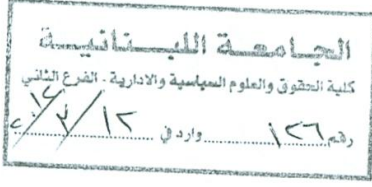 الجامعة اللبنانية
كلية الحقوق والعلوم السياسية والادارية - الفرع الثاني
رقم ١٢٦ وارد في ١٢/٣/